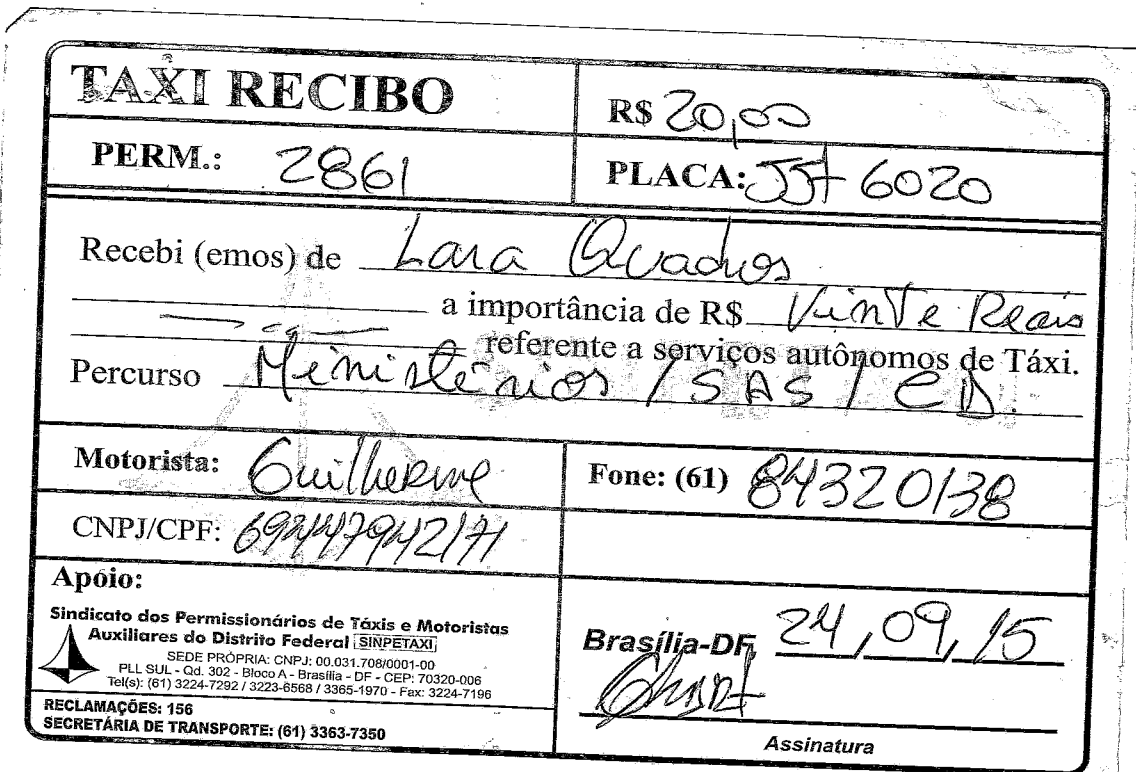 TAXI RECIBO
R$ 20,00
PERM.: 2861
PLACA: JJF 6020
Recebi (emos) de Lara Quadros
a importância de R$ Vinte Reais
referente a serviços autônomos de Táxi.
Percurso Ministérios / SAS / CD.
Motorista: Guilherme
Fone: (61) 84320138
CNPJ/CPF:
Apoio:
Sindicato dos Permissionários de Táxis e Motoristas
Auxiliares do Distrito Federal SINPETAXI
SEDE PRÓPRIA: CNPJ: 00.031.708/0001-00
PLL SUL - Qd. 302 - Bloco A - Brasília - DF - CEP: 70320-006
Tel(s): (61) 3224-7292 / 3223-6568 / 3365-1970 - Fax: 3224-7196
RECLAMAÇÕES: 156
SECRETÁRIA DE TRANSPORTE: (61) 3363-7350
Brasília-DF, 24, 09, 15
Assinatura